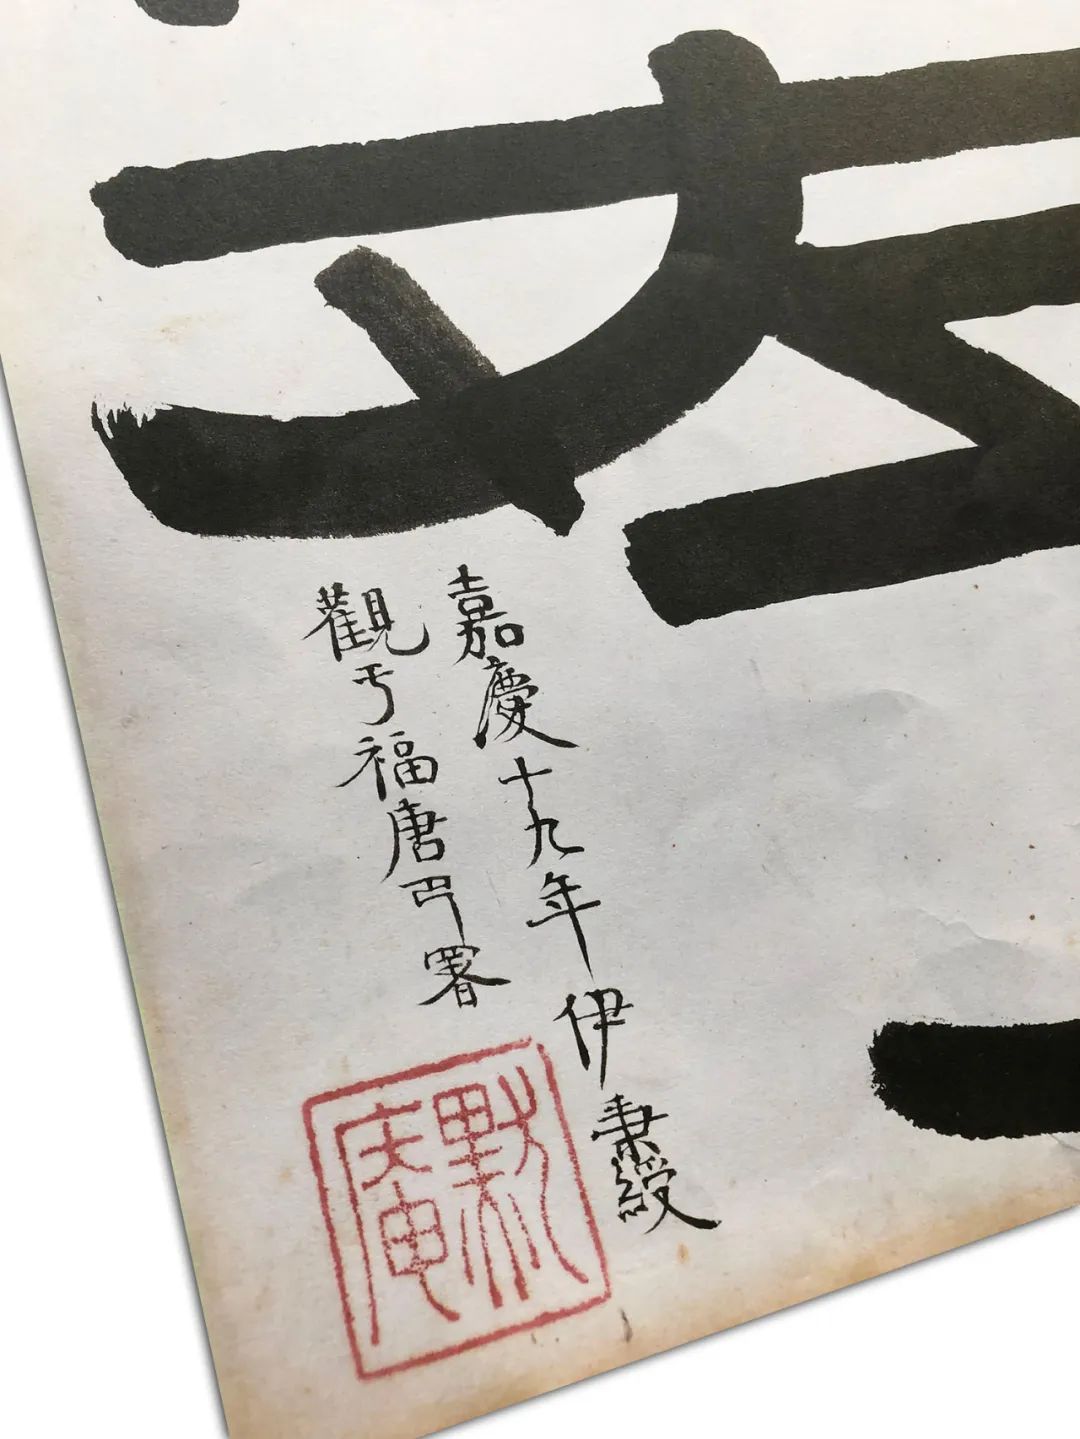 嘉慶十九年伊秉綬
觀亏福唐署
默庵